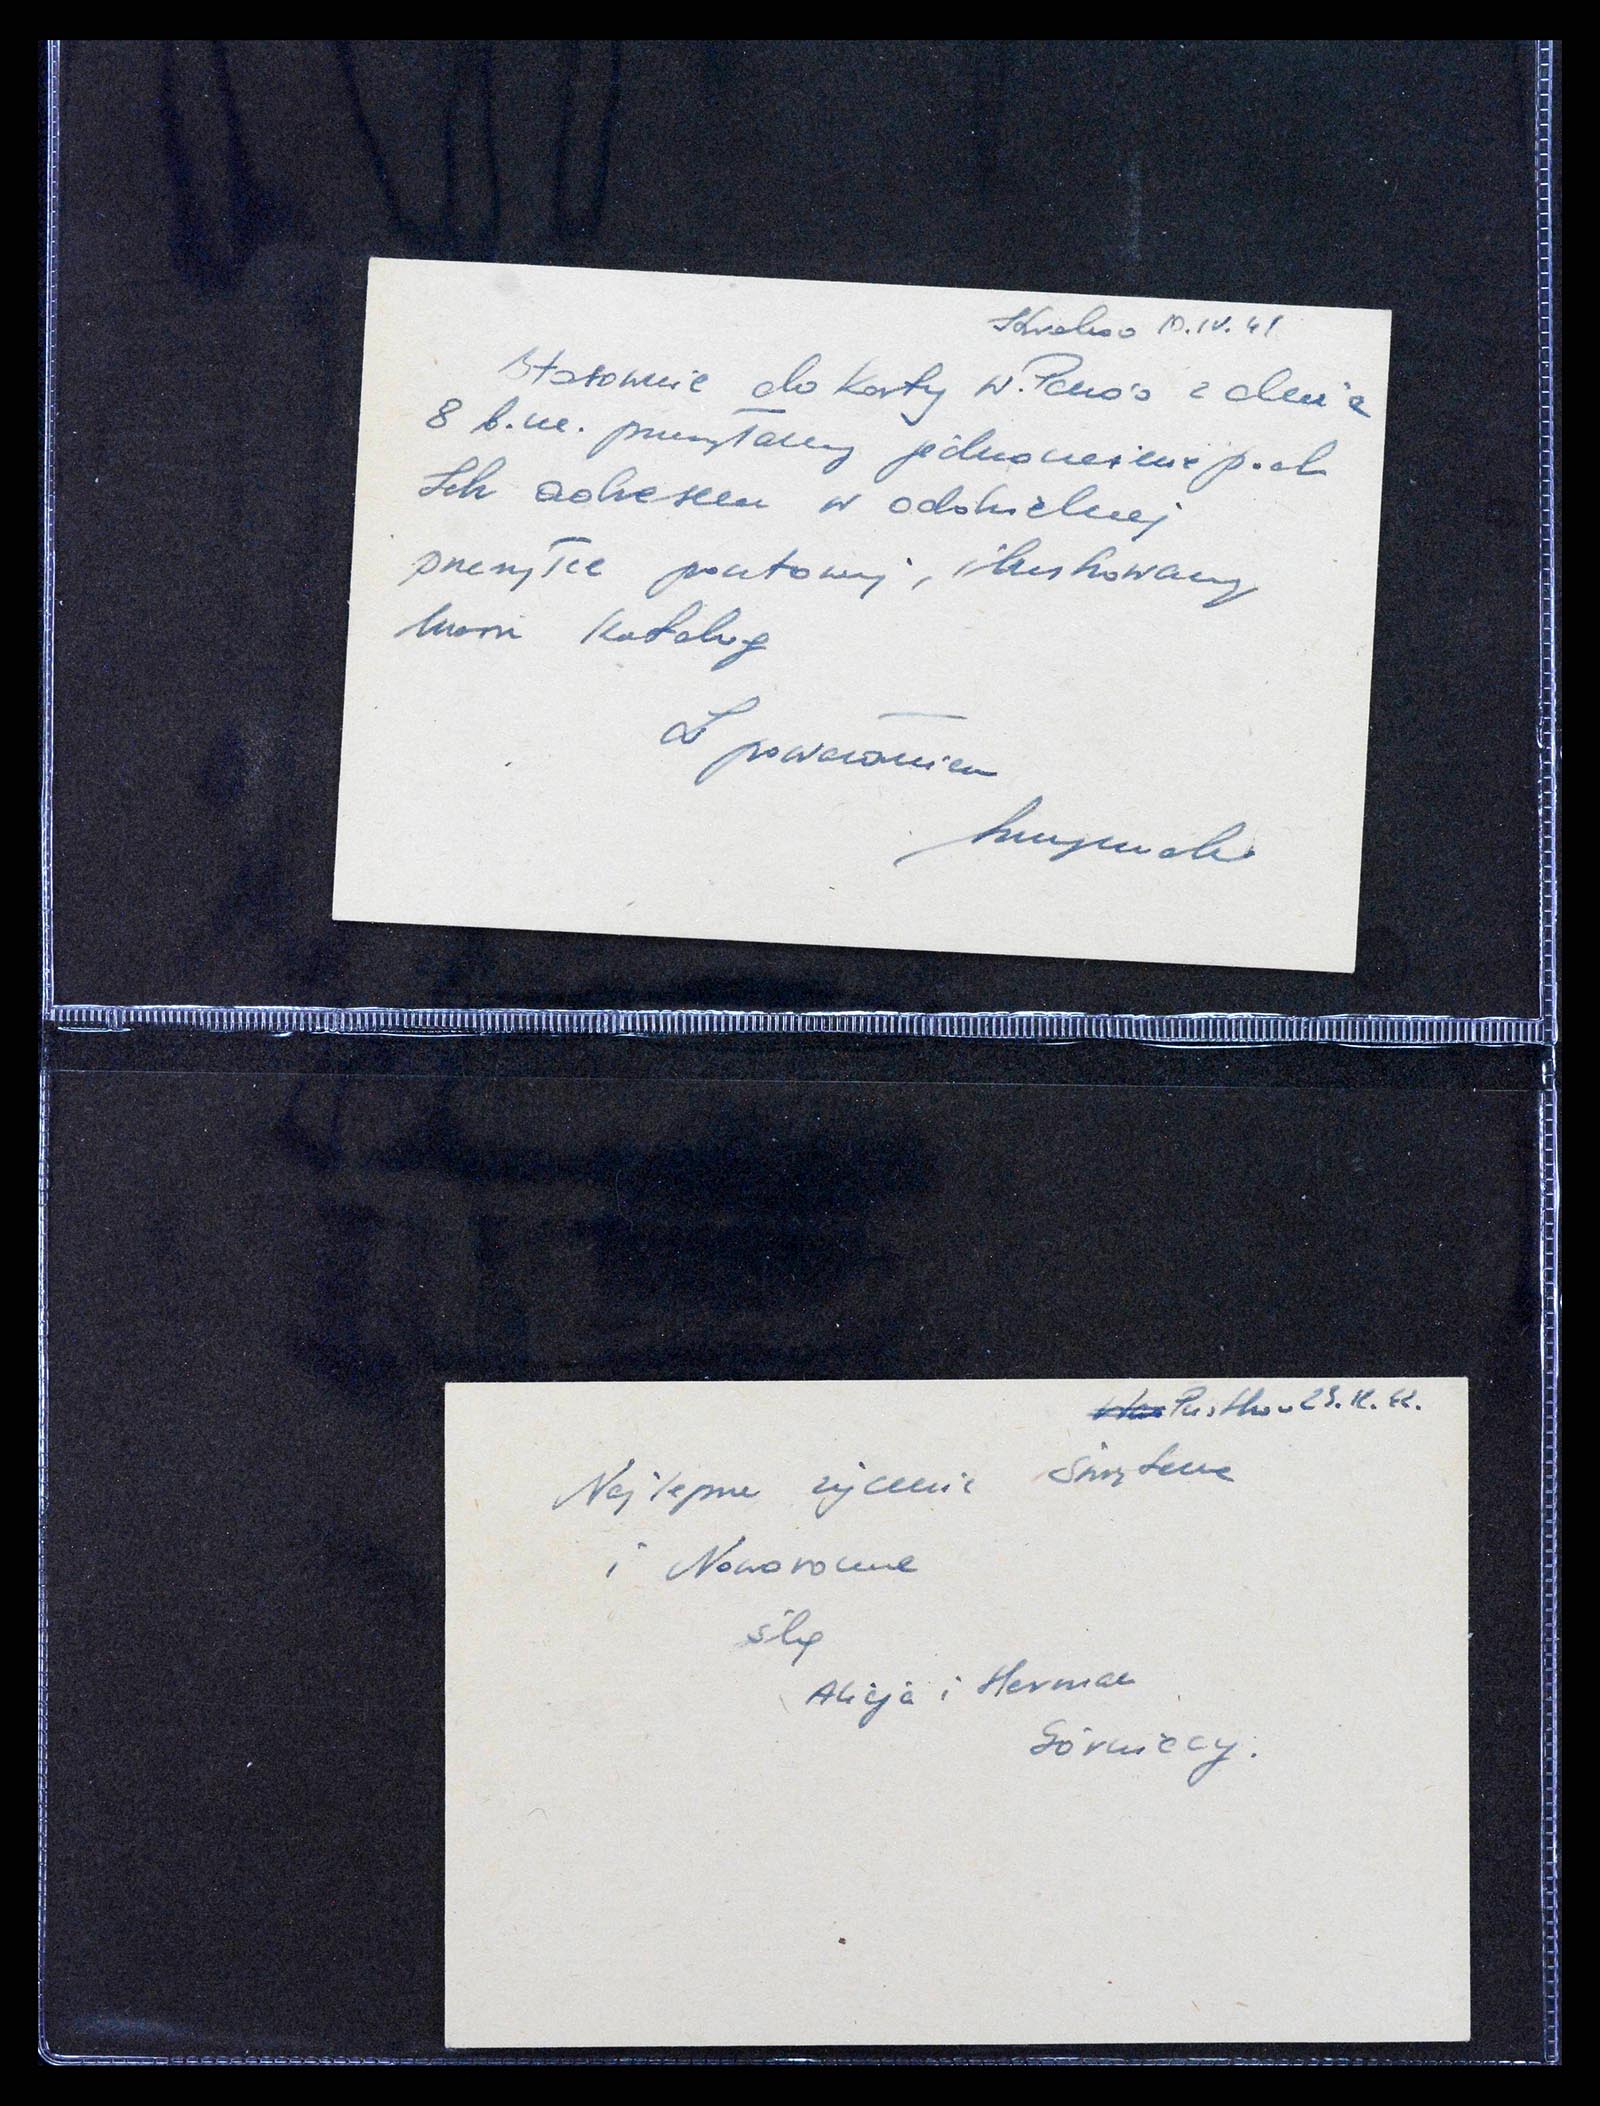 Kraków 10.IV.41
Stosownie do karty W.Panów z dnia
8 b.m. przesyłamy jednocześnie pod
Ich adresem w oddzielnej
przesyłce pocztowej, ilustrowany
nasz katalog
Z poważaniem
Pustków 23.12.42.
Najlepsze życzenia świąteczne
i Noworoczne
ślą
Alicja i Herman
Górniccy.